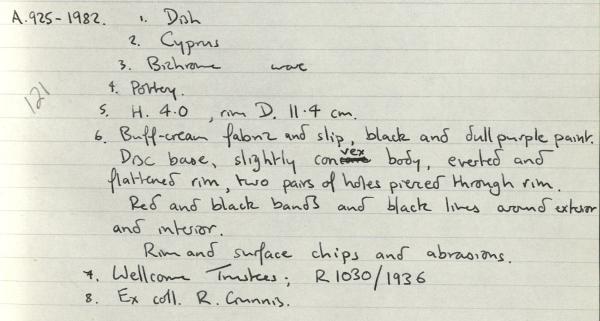 A.925-1982. 1. Dish
2. Cyprus
3. Bichrome ware
121
4. Pottery.
5. H. 4.0 , rim D. 11.4 cm.
6. Buff-cream fabric and slip, black and dull purple paint.
Disc base, slightly convex body, everted and
flattened rim, two pairs of holes pierced through rim.
Red and black bands and black lines around exterior
and interior.
Rim and surface chips and abrasions.
7. Wellcome Trustees; R 1030/1936
8. Ex coll. R. Gunnis.